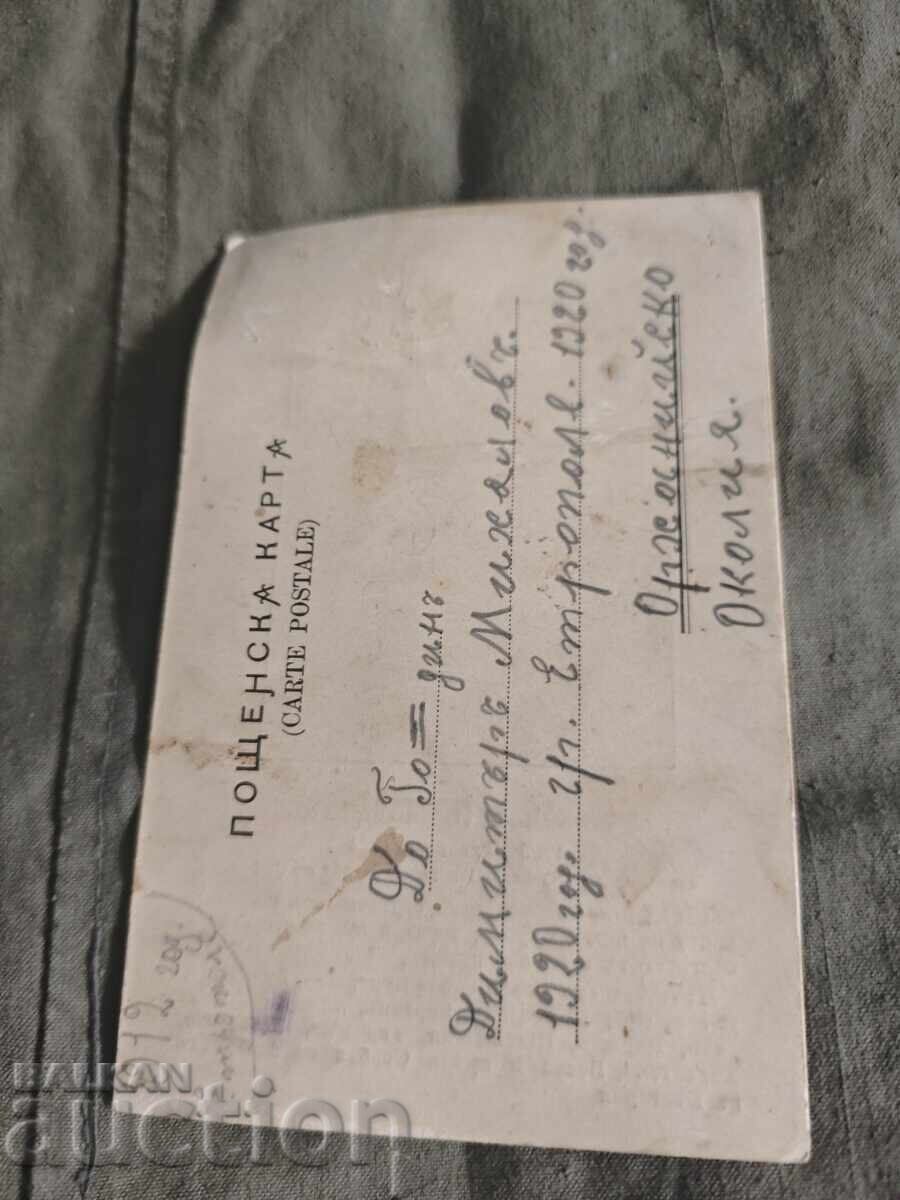 ПОЩЕНСКА КАРТА
(CARTE POSTALE)
912 год.
До Го=динъ
Димитъръ Михаловъ.
1920 год. гр. Етрополе. 1920 год.
Орханийско
Околия.
BALKAN
auction